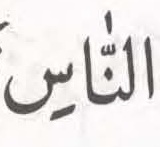 النَّاسِ